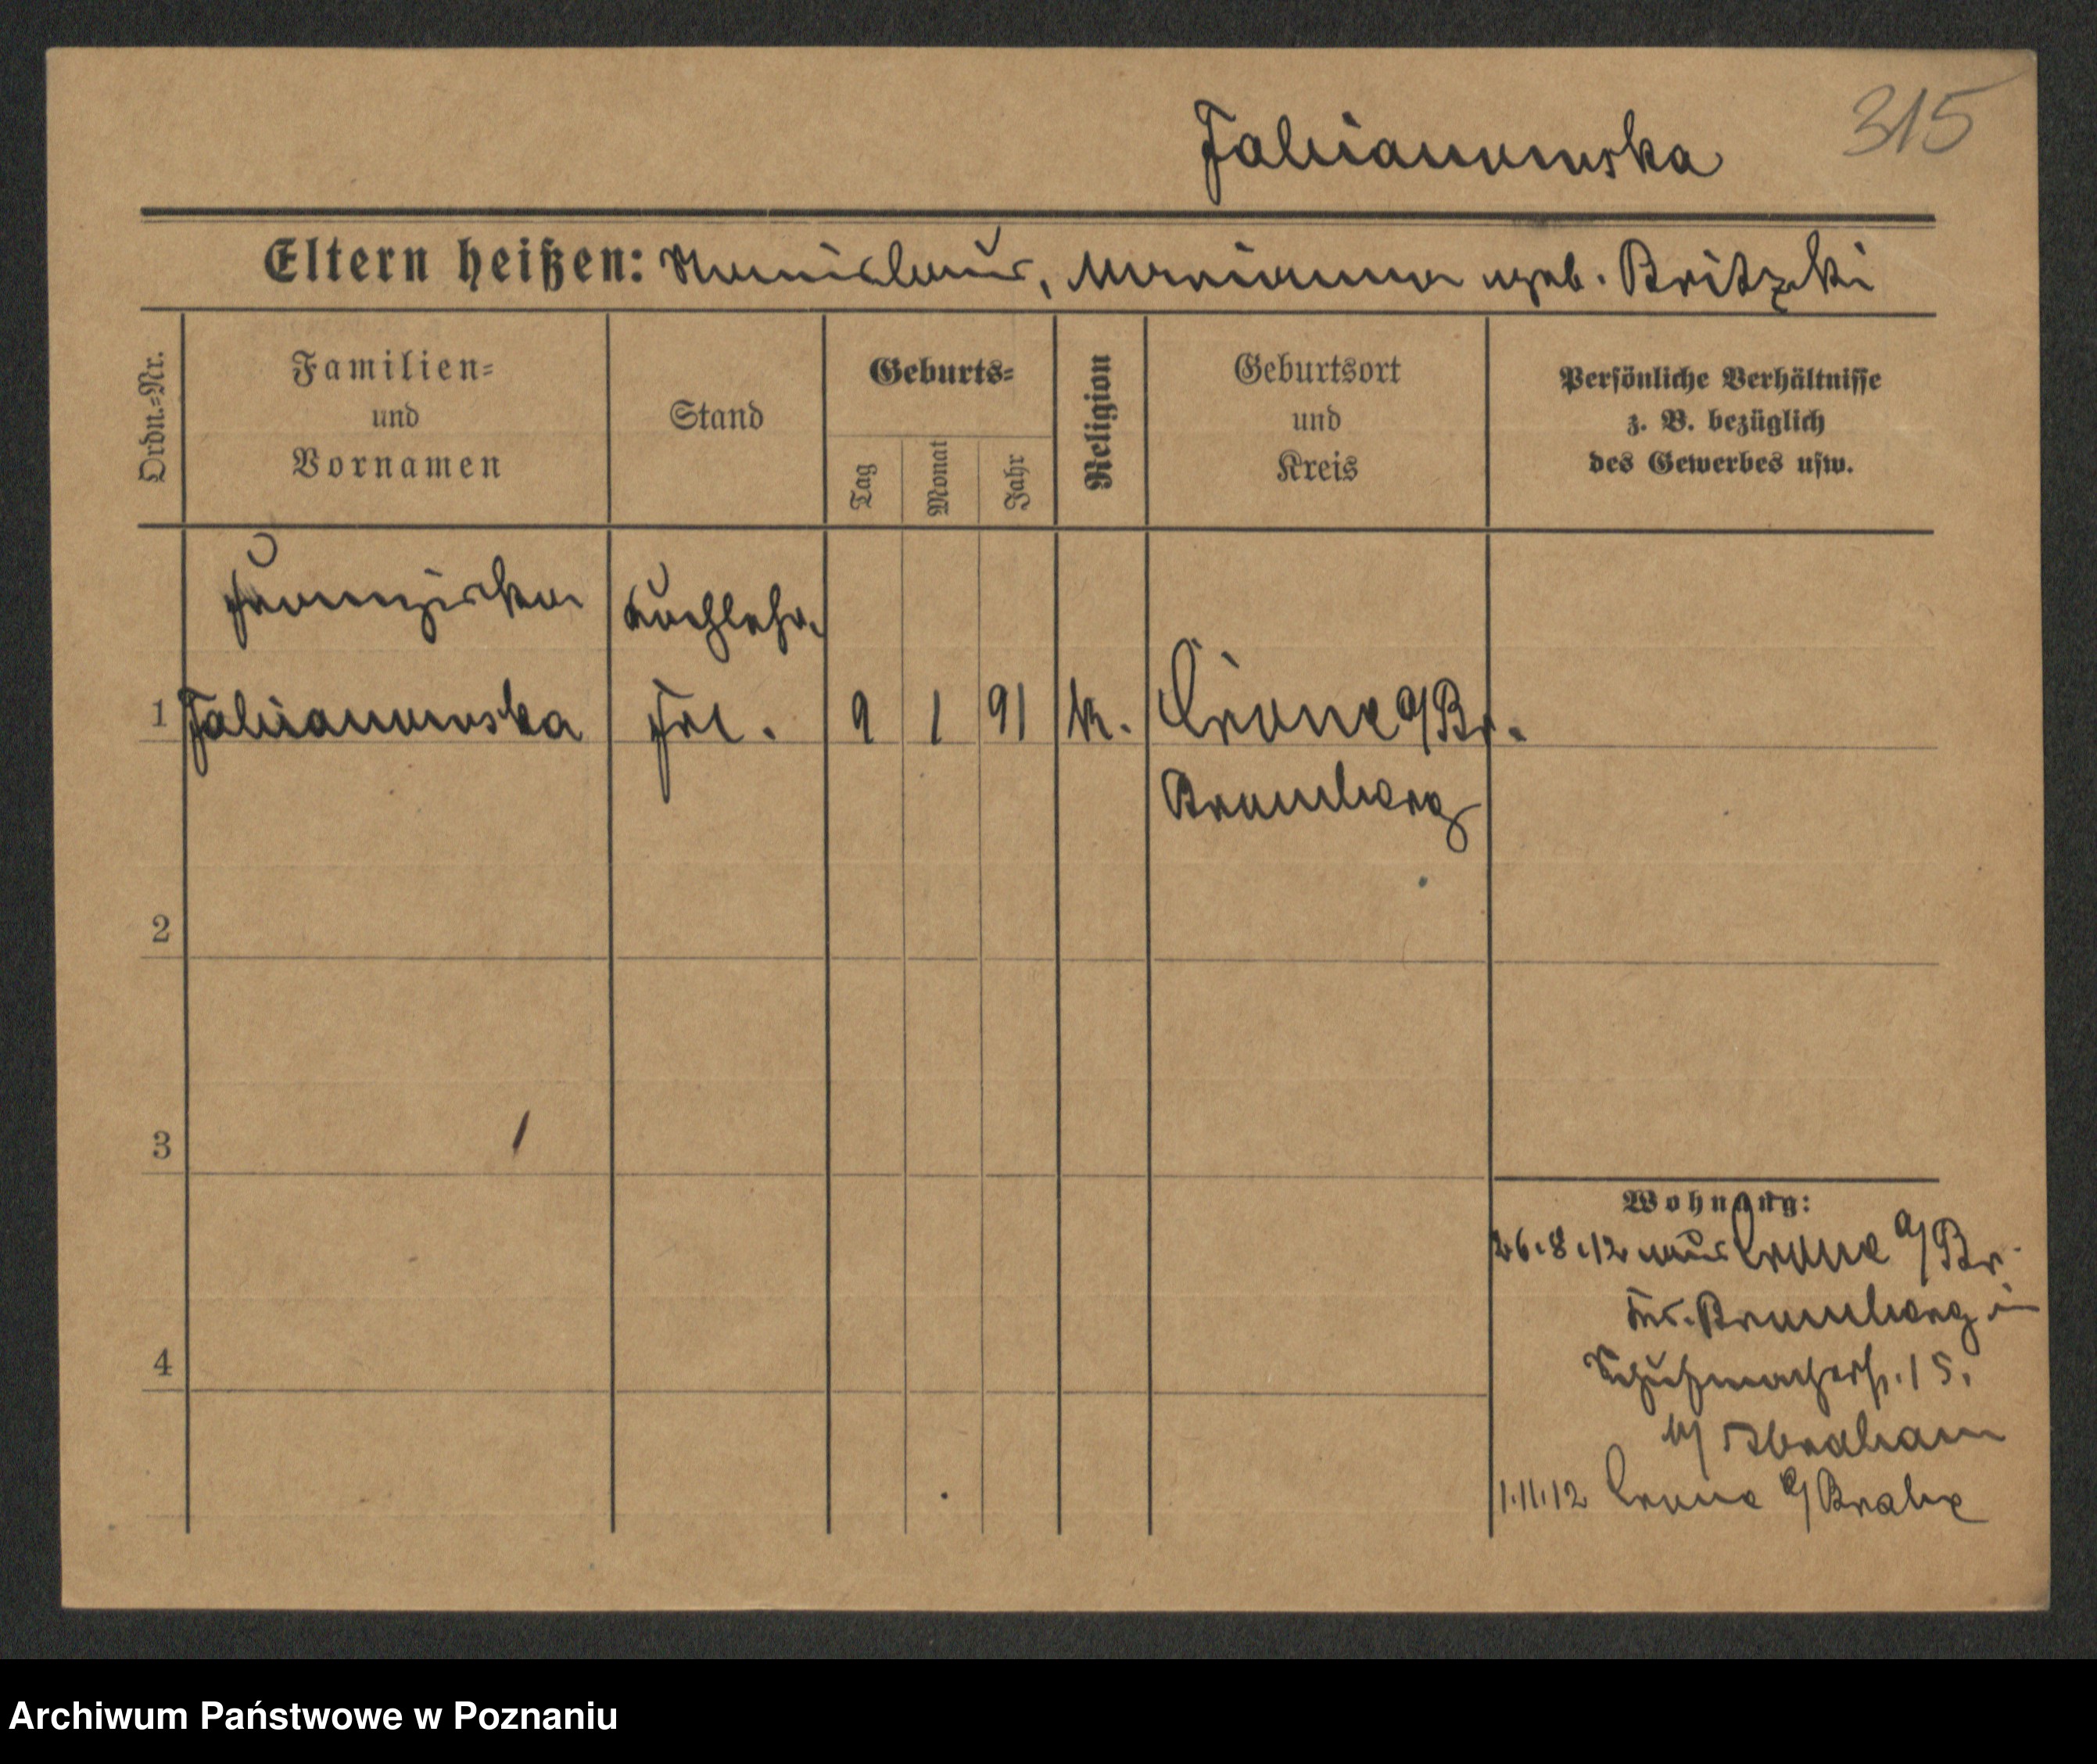 315
Fabianowska
Eltern heißen: Stanislaus, Marianna geb. Britzki
Ordn.=Nr.
Familien=
und
Vornamen
Stand
Geburts=
Tag
Monat
Jahr
Religion
Geburtsort
und
Kreis
Persönliche Verhältnisse
z. B. bezüglich
des Gewerbes usw.
Franziska
Kochlehr.
1 Fabianowska Frl. 9 1 91 k. Crone a/Br.
Bromberg
2
3
4
Wohnung:
26.8.12 aus Crone a/Br.
Kr. Bromberg in
Schuhmacherstr. 15.
b/ Abraham
1.11.12 Crone a/Brahe
Archiwum Państwowe w Poznaniu